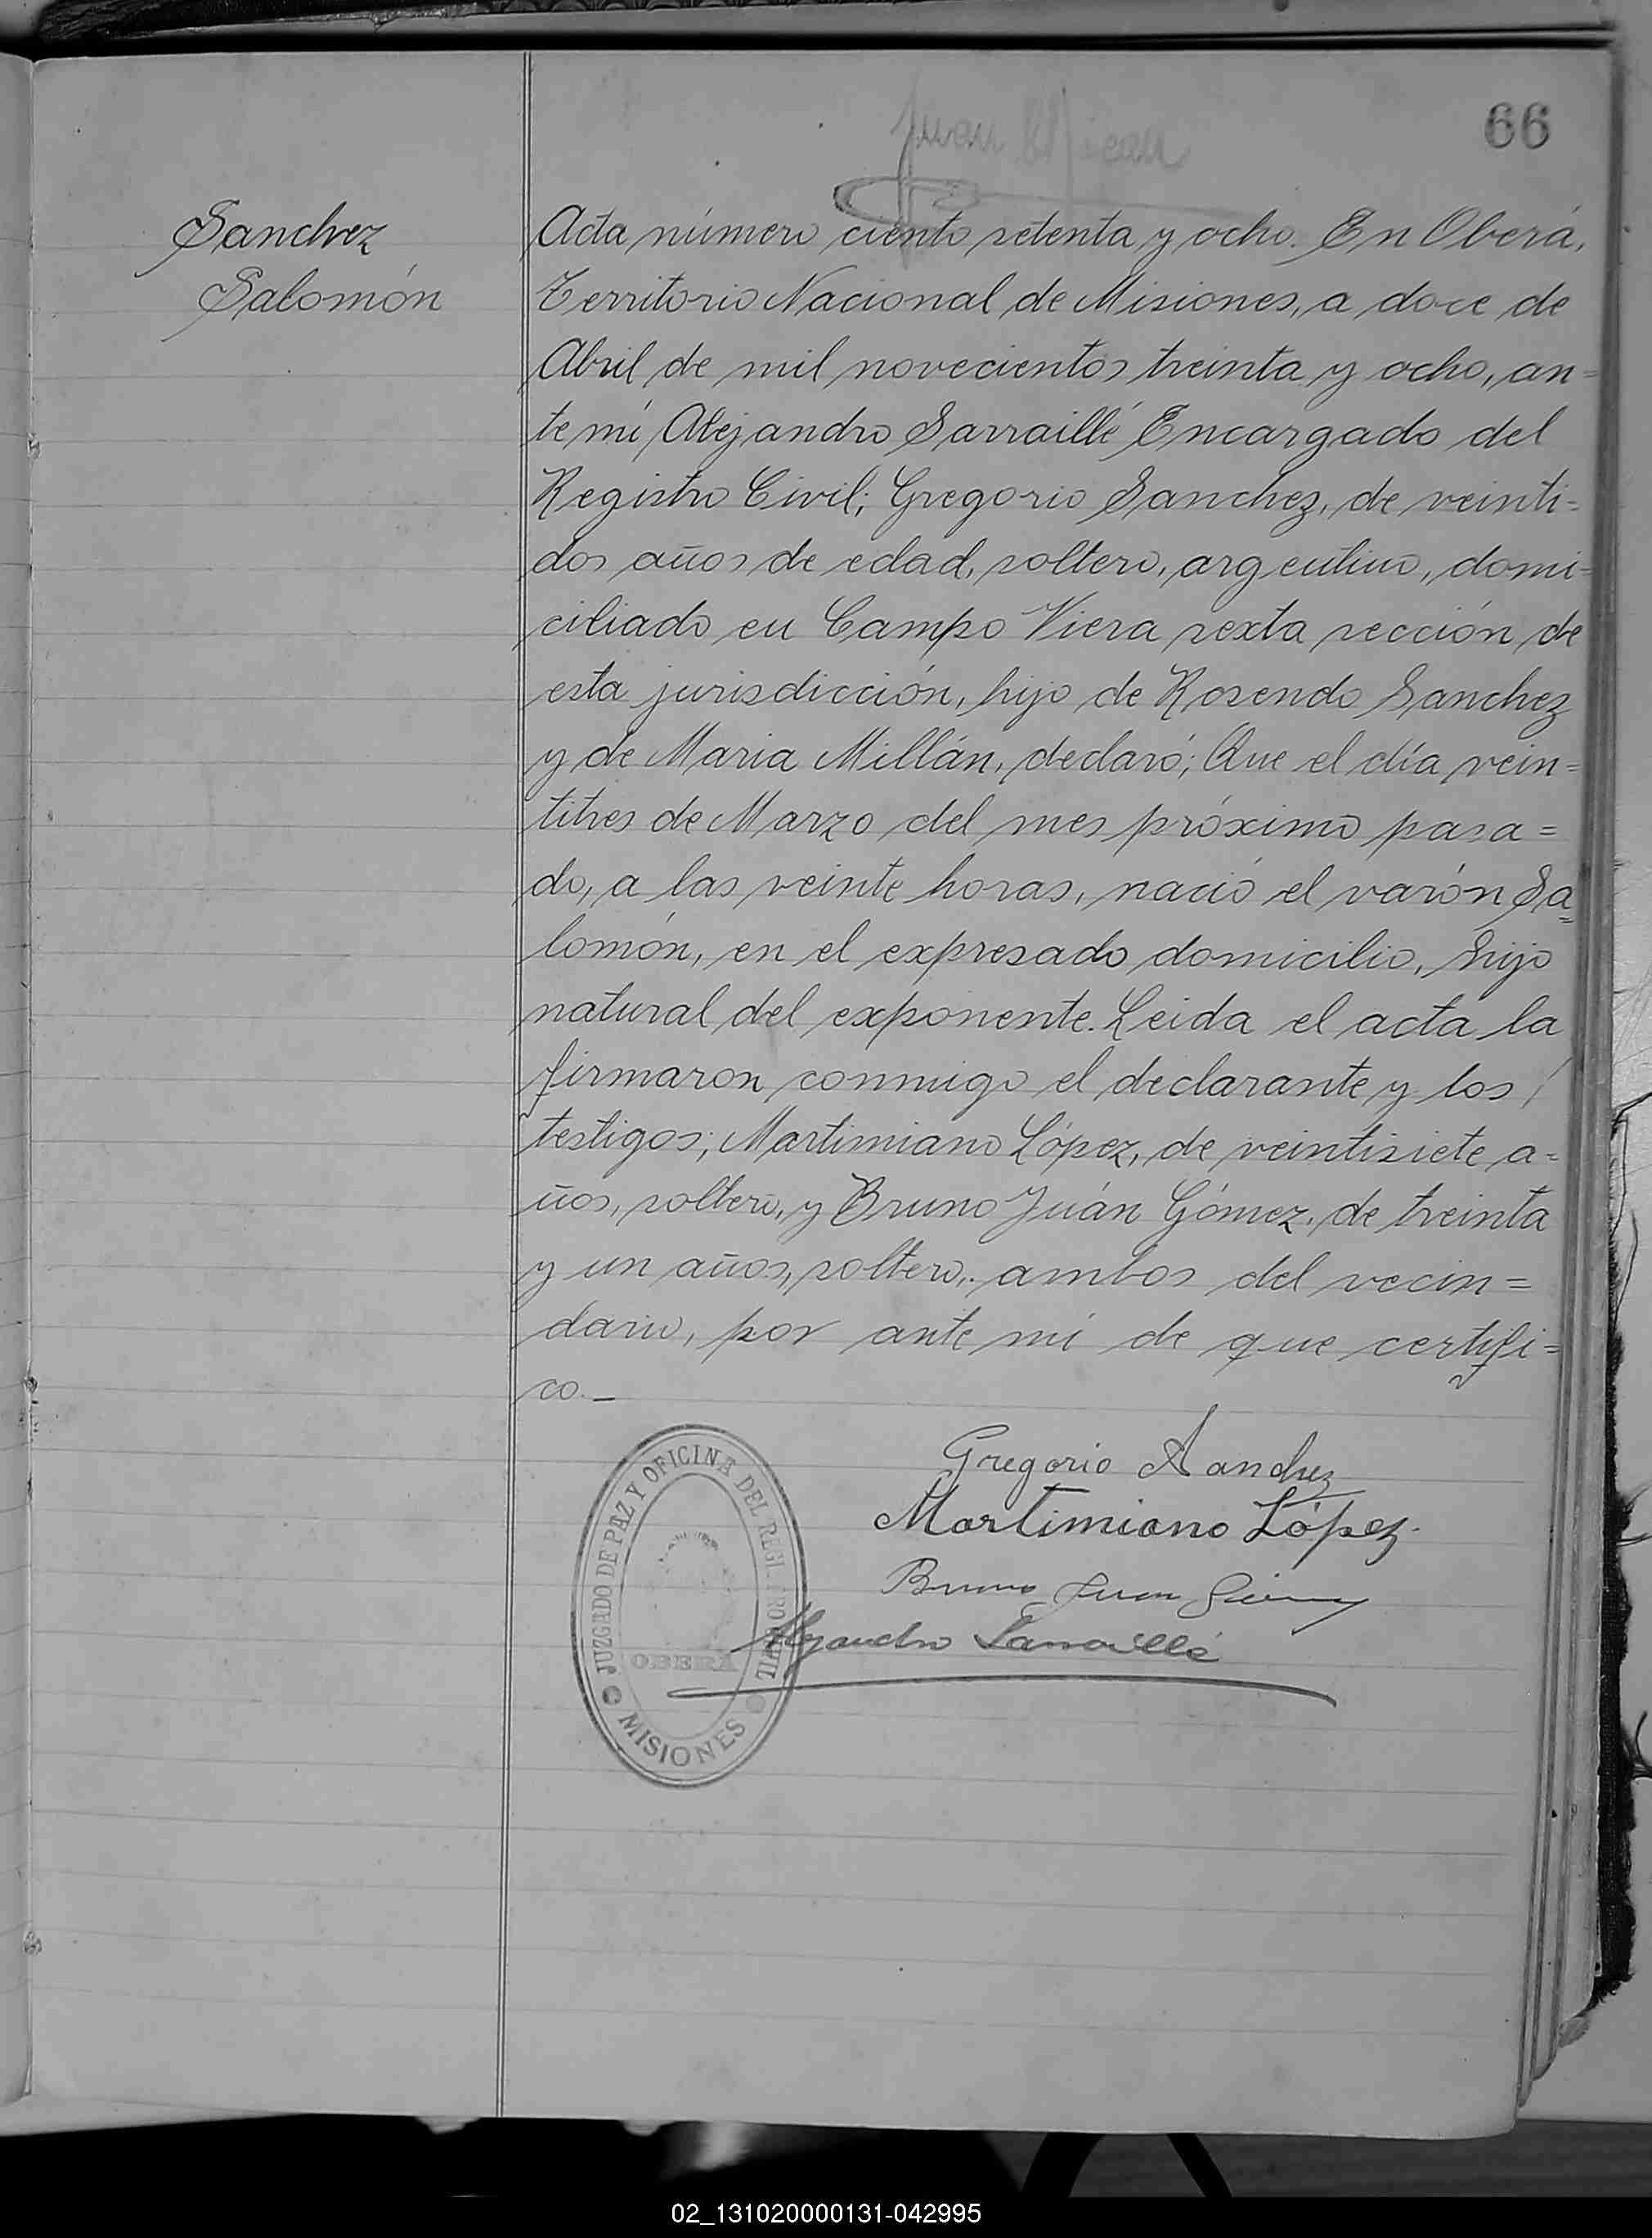 66
Juan
Sanchez
Salomón
Acta número ciento setenta y ocho. En Oberá,
Territorio Nacional de Misiones, a doce de
Abril de mil novecientos treinta y ocho, an=
te mi Alejandro Sarraillé Encargado del
Registro Civil; Gregorio Sanchez, de veinti=
dos años de edad, soltero, argentino, domi=
ciliado en Campo Viera sexta sección de
esta jurisdicción, hijo de Rosendo Sanchez
y de Maria Millán, declaró; Que el día vein=
titres de Marzo del mes próximo pasa=
do, a las veinte horas, nació el varón Sa=
lomón, en el expresado domicilio, hijo
natural del exponente. Leida el acta la
firmaron conmigo el declarante y los /
testigos; Martimiano López, de veintisiete a=
ños, soltero, y Bruno Juán Gómez, de treinta
y un años, soltero, ambos del vecin=
dario, por ante mi de que certifi=
co.—
Gregorio Sanchez
Martimiano López.
Bruno Juan Gómez
Alejandro Sarraillé
JUZGADO DE PAZ Y OFICINA DEL REGI. RO CIVIL
OBERÁ
MISIONES
02_131020000131-042995